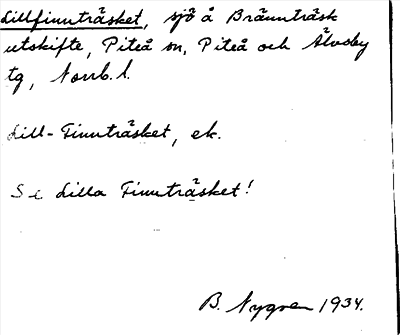 Lillfinnträsket, sjö å Brännträsk
utskifte, Piteå sn, Piteå och Älvsby
tg, Norrb. l.
Lill-Finnträsket, ek.
Se Lilla Finnträsket!
B. Nygren 1934.